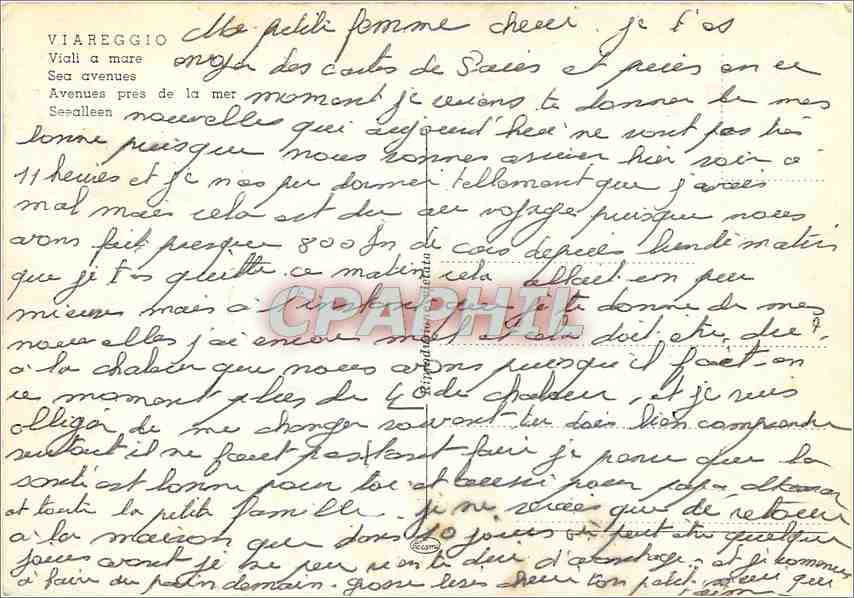 VIAREGGIO
Viali a mare
Sea avenues
Avenues pres de la mer
Seealleen
Ma petite femme cheri. je t'es
des cartes de et en ce
moment je viens te donner de mes
nouvelles qui aujourd'hui ne sont pas très
bonne puisque nous sommes arriver hier soir a
11 heures et je n'es pu dormir tellement que j'avais
mal mais cela est du au voyage puisque nous
avons fait presque 800 km de depuis lundi matin
que je t'es quitté ce matin cela allait un peu
mieux mais a l'instant que je te donne de mes
nouvelles j'ai encore mal et cela doit etre du
a la chaleur que nous avons puisqu'il fait en
ce moment plus de 40 de chaleur et je suis
obliger de me changer souvent tu dois bien comprendre
surtout il ne faut pas faire je pense que la
santé est bonne pour toi et aussi pour papa maman
et toute la petite famille. je ne serais que de retour
a la maison que dans 10 jours ou peut etre quelque
jours avant je ne peu rien te dire d'avantage et je commence
a faire du demain. grosse bises cheri ton petit qui
t'aime
Riproduzione vietata
CPAPHIL